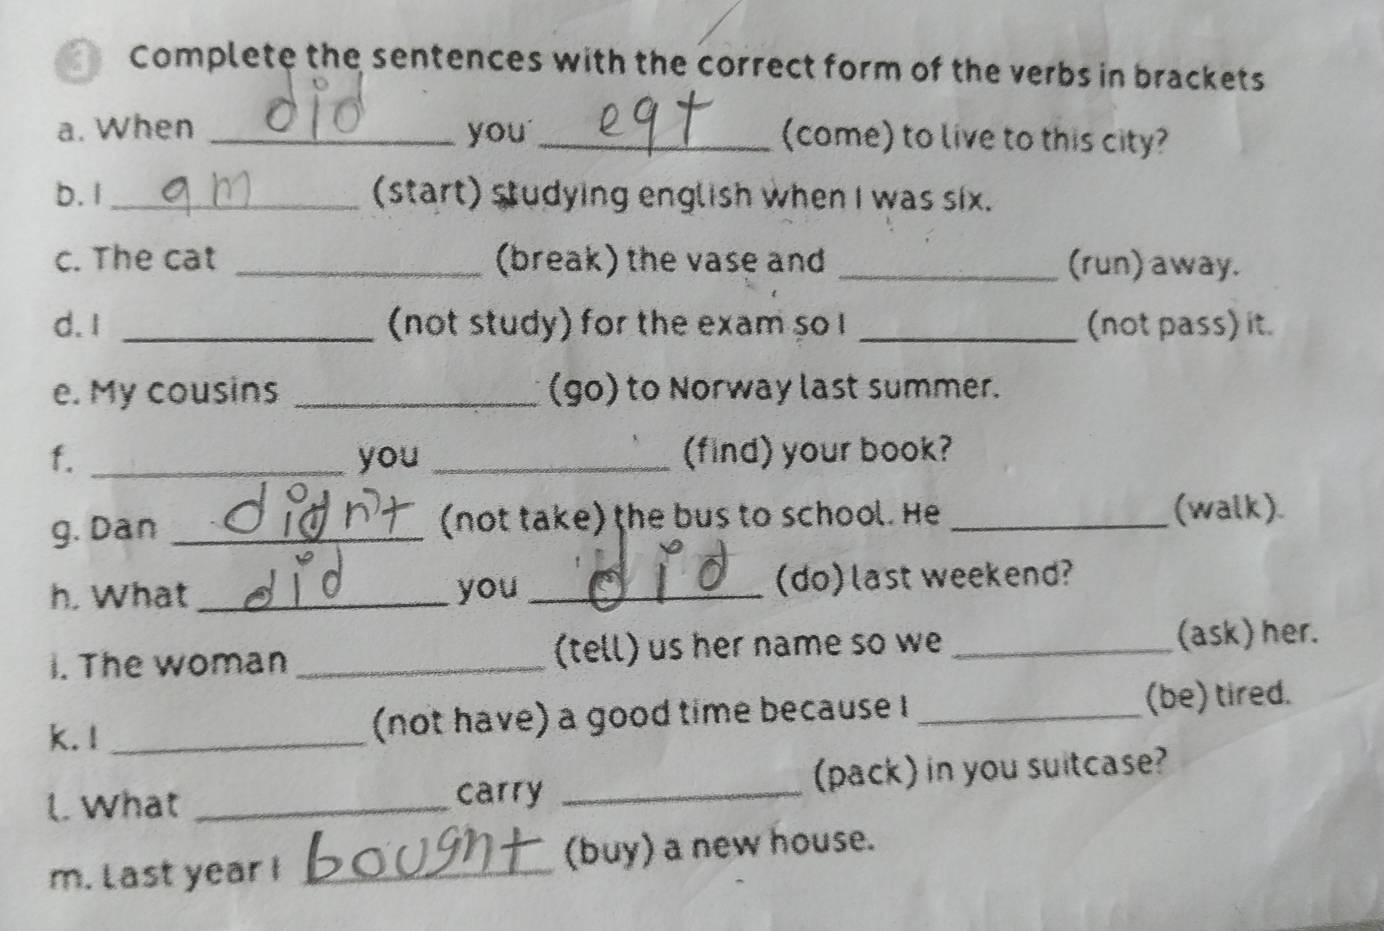 3 Complete the sentences with the correct form of the verbs in brackets
a. When did you eqt (come) to live to this city?
b. I am (start) studying english when I was six.
c. The cat ____ (break) the vase and ____ (run) away.
d. I ____ (not study) for the exam so I ____ (not pass) it.
e. My cousins ____ (go) to Norway last summer.
f. ____ you ____ (find) your book?
g. Dan didn't (not take) the bus to school. He ____ (walk).
h. What did you did (do) last weekend?
i. The woman ____ (tell) us her name so we ____ (ask) her.
k. I ____ (not have) a good time because I ____ (be) tired.
l. What ____ carry ____ (pack) in you suitcase?
m. Last year I bought (buy) a new house.